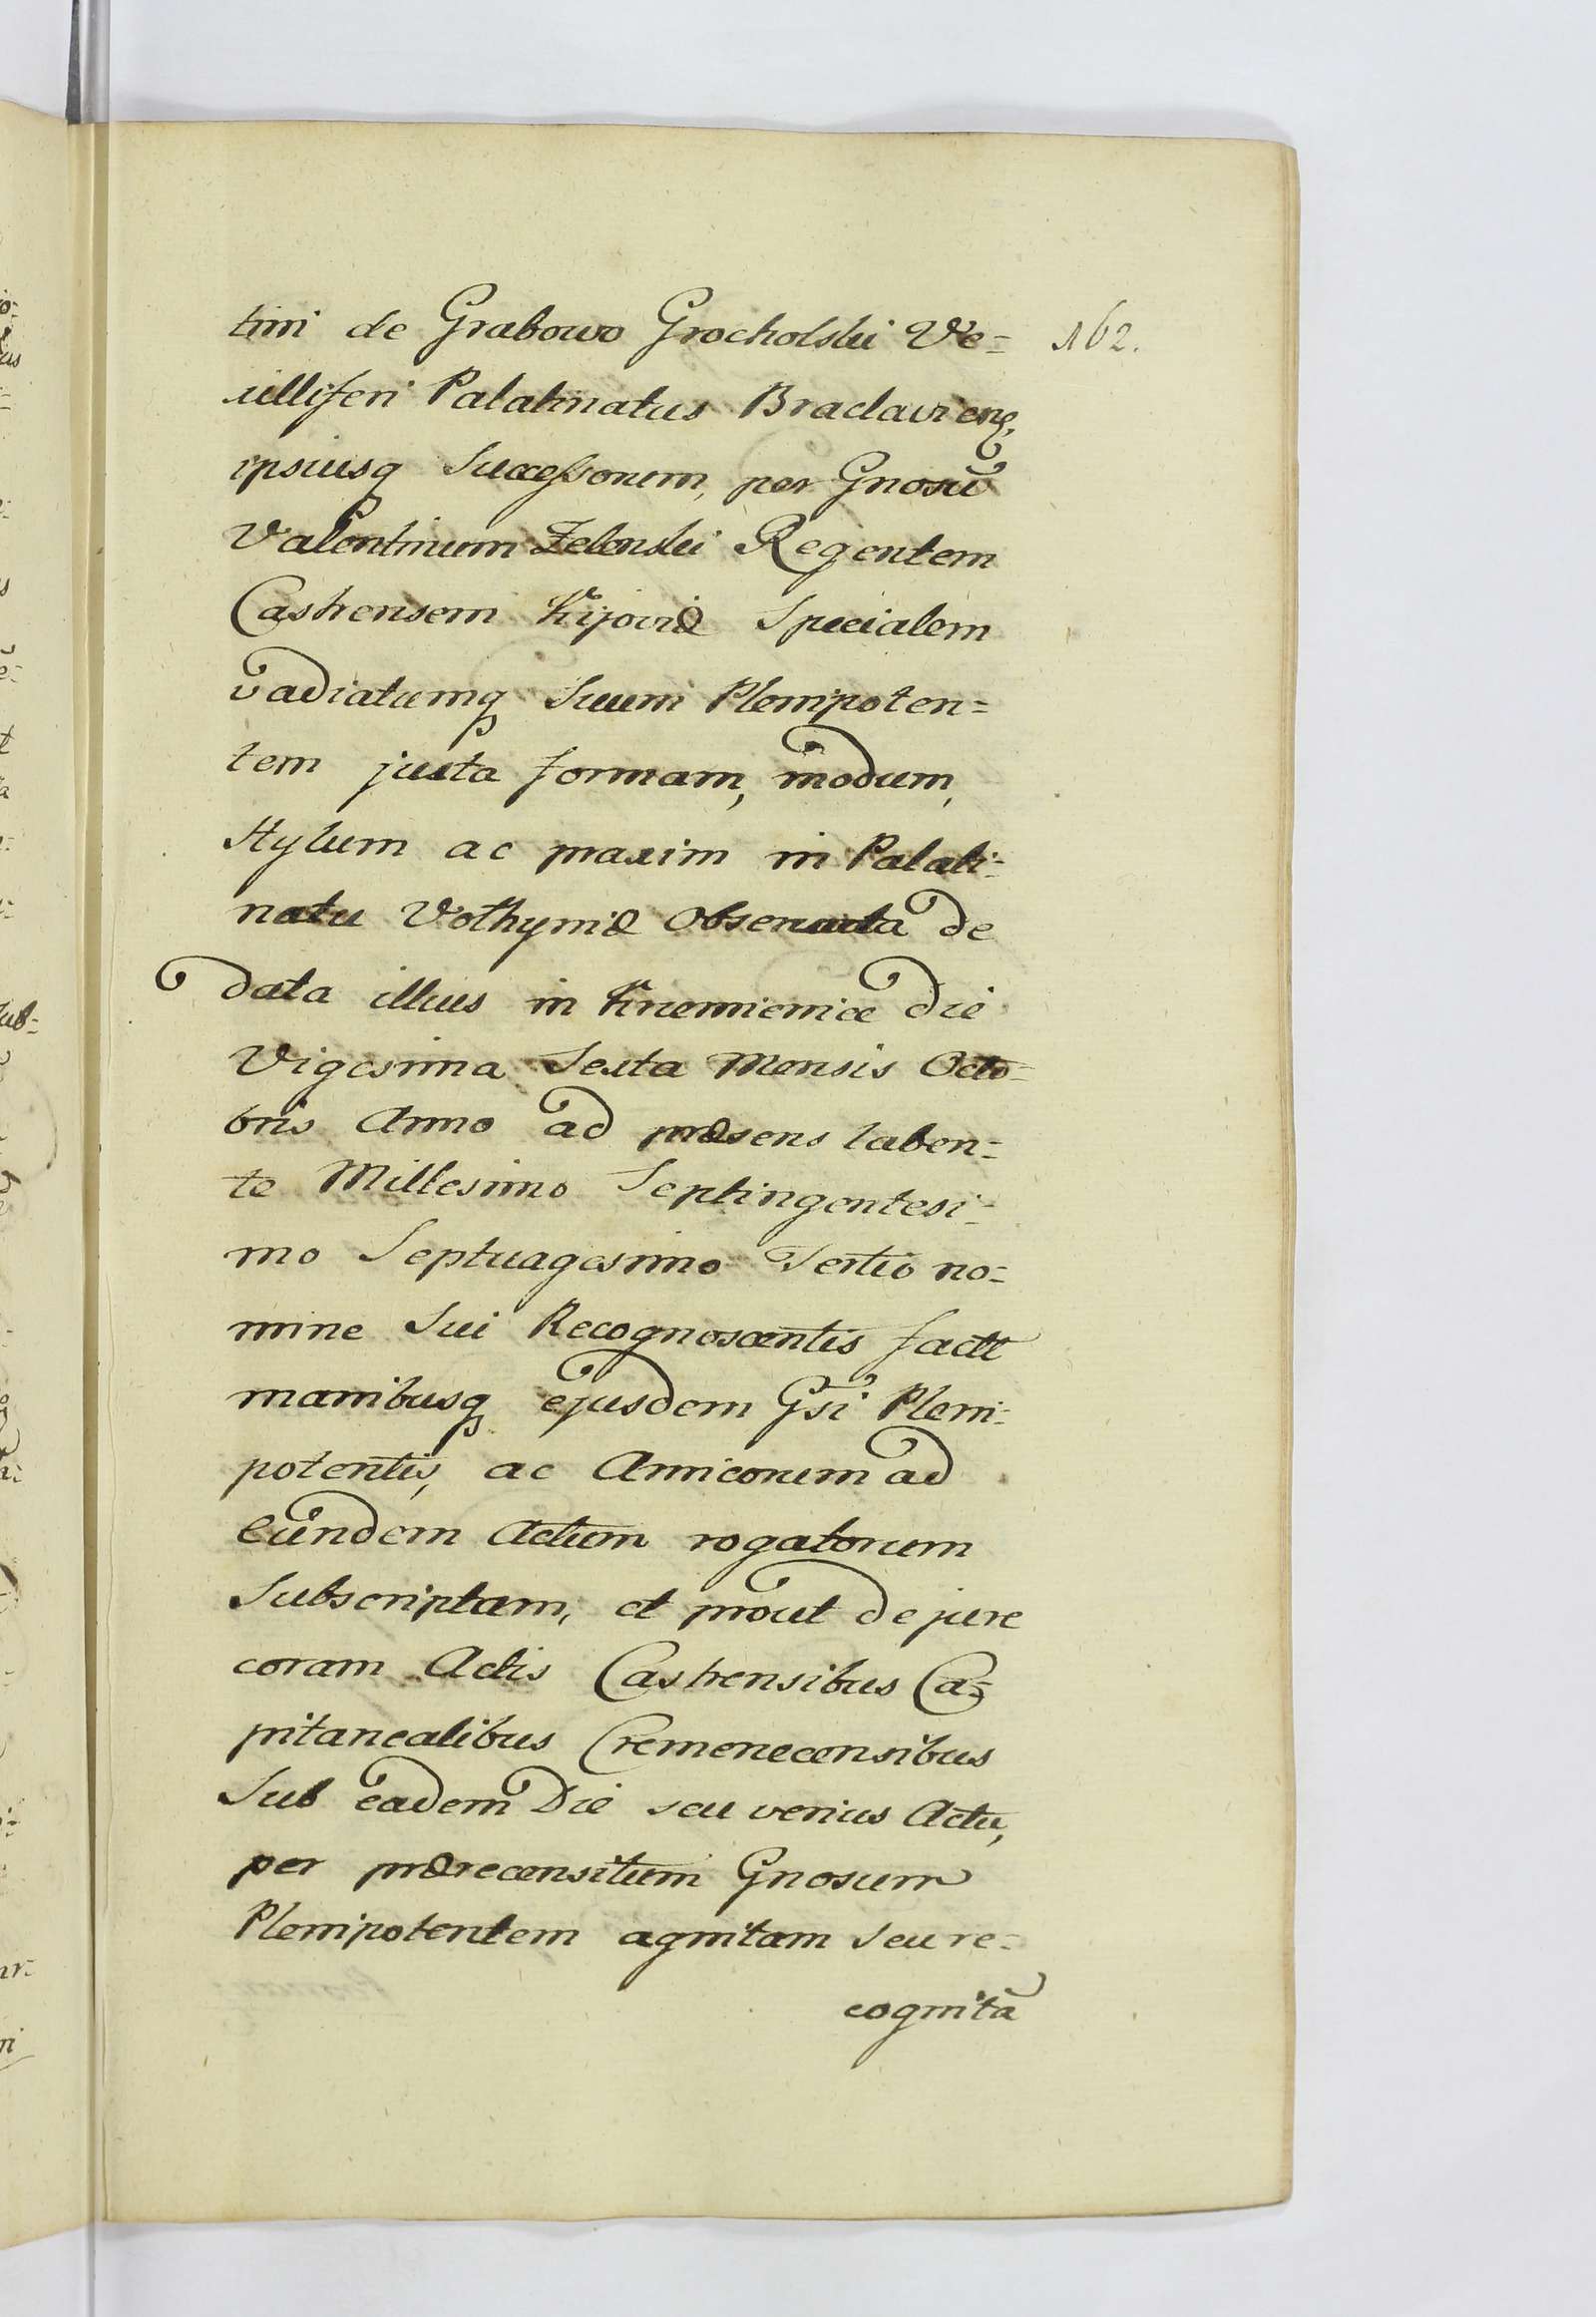 tini de Grabowo Grocholski Ve= 162.
xilliferi Palatinatus Braclavienꝭ,
ipsiusq Successorum, per Gnosū
Valentinum Zelenski Regentem
Castrensem Kijoviæ Specialem
vadiatumq Suum Plenipoten=
tem juxta formam, modum,
Stylum ac praxim in Palati=
natu Volhyniæ Observata de
data illius in Krzemienice die
Vigesima Sexta Mensis Octo=
bris Anno ad præsens laben=
te Millesimo Septingentesi=
mo Septuagesimo Tertio no=
mine Sui Recognoscentis factā
manibusq ejusdem Gsi Pleni=
potentis, ac Amicorum ad
eundem Actum rogatorum
Subscriptam, et prout de jure
coram Actis Castrensibus Ca=
pitanealibus Cremenecensibus
Sub eadem Die seu verius Actu,
per prærecensitum Gnosum
Plenipotentem agnitam seu re=
cognitā